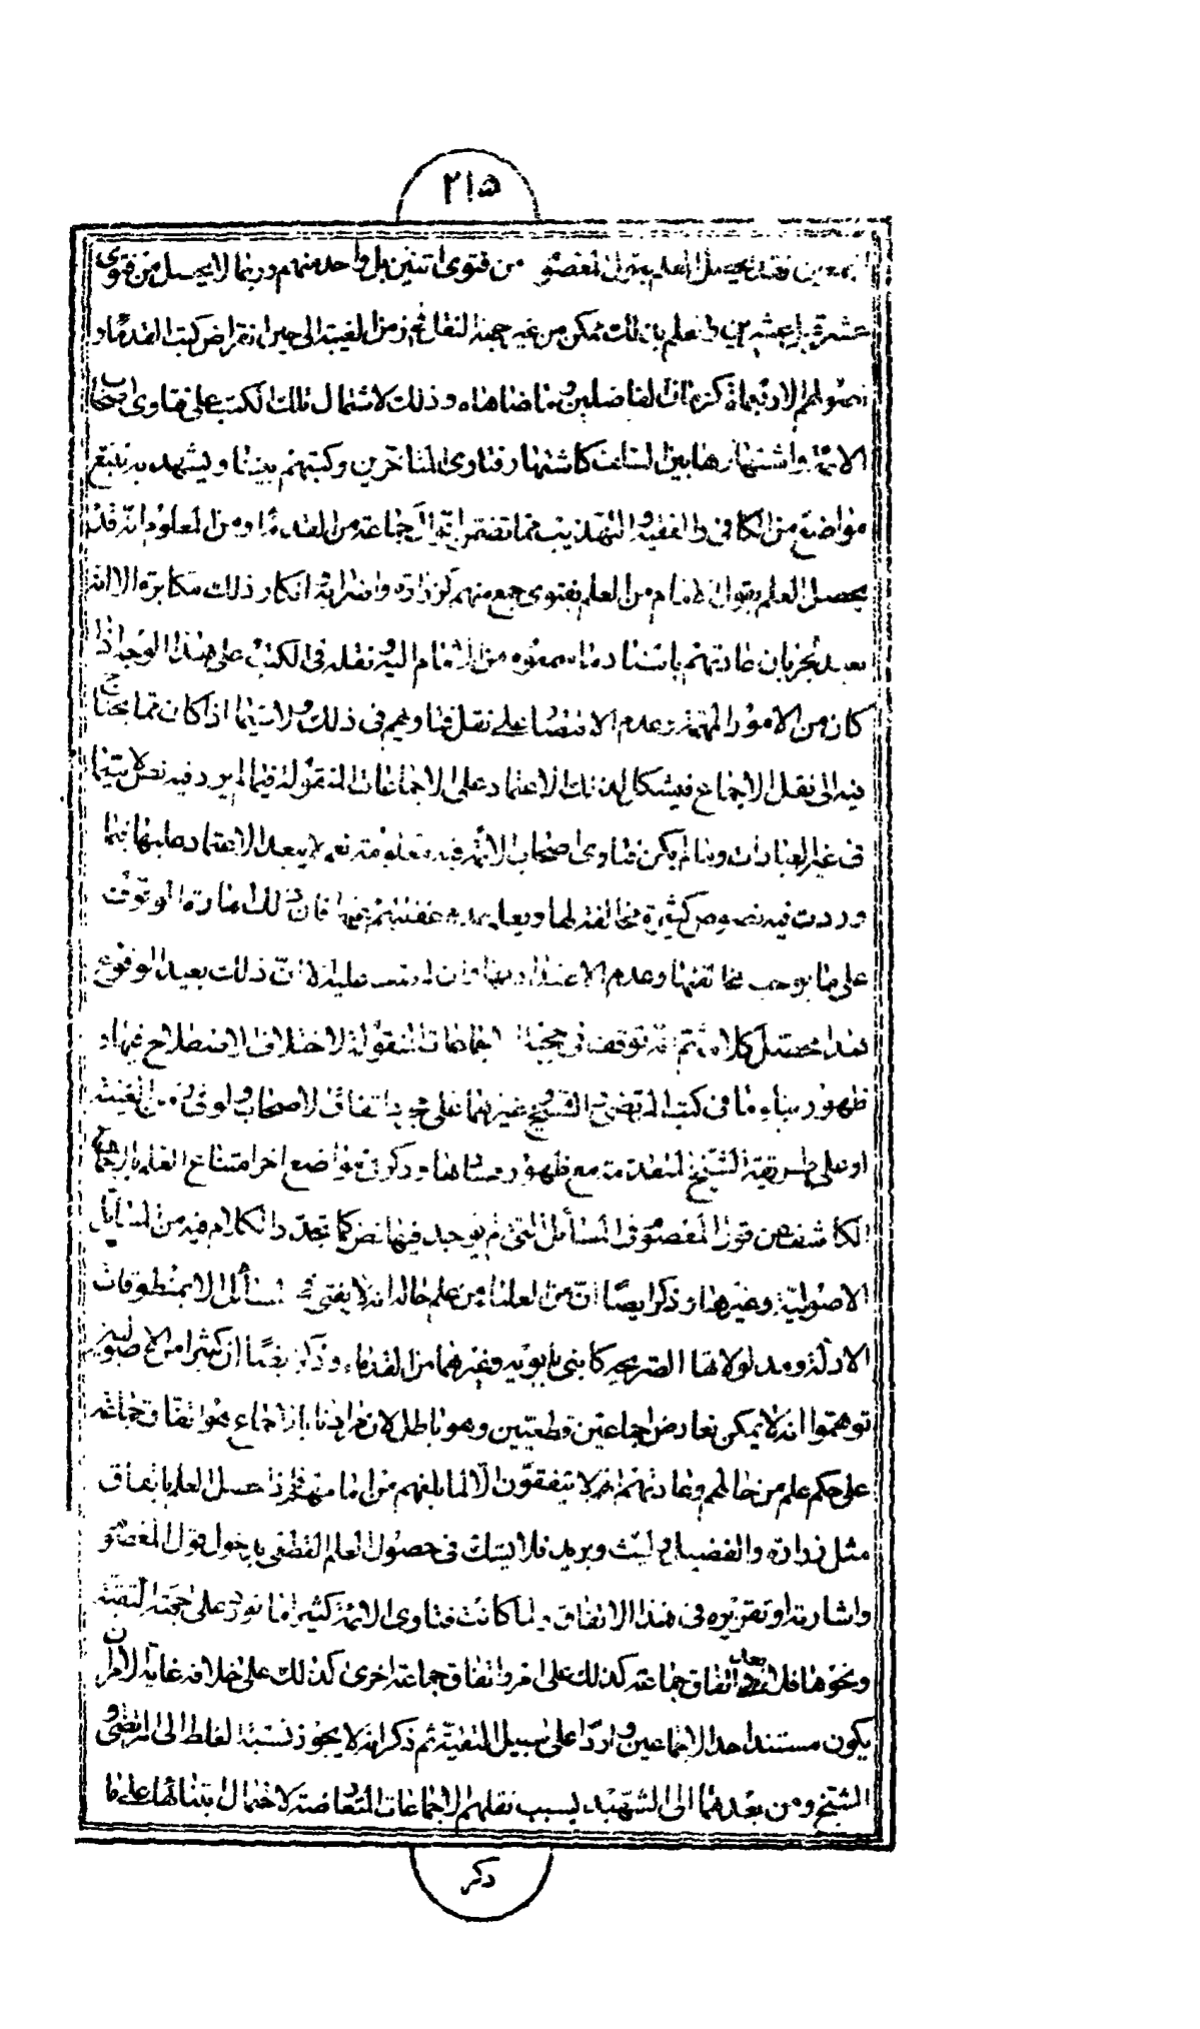 ٢١٥
فقد يحصل العلم بقول المعصو من فتوى اثنين بل واحد منهم وربما لا يحصل من فتوى
عشرة بل عشرين فنعلم بان ذلك ممكن من غير جهة النقل في زمن الغيبة الى حين انقراض كتب القدماء و
اصولهم الاربعمائة كزمان الفاضلين وما ضاهاه وذلك لاشتمال تلك الكتب على فتاوى اصحاب
الائمة واشتهارها بين السلف كاشتهار فتاوى المتاخرين وكتبهم بيننا ويشهد به تتبع
مواضع من الكافي والفقيه والتهذيب مما تضمن اقوال جماعة من القدماء ومن المعلوم انه قد
يحصل العلم بقول الامام من العلم بفتوى جمع منهم كزرارة واضرابه انكار ذلك مكابرة الا انه
بعد جريان عادتهم باسناد ما سمعوه من الامام اليه ونقله في الكتب على هذا الوجه اذا
كان من الامور المهمة وعدم الاقتصار على نقل فتاويهم في ذلك ولا سيما اذا كان مما يحتاج
فيه الى نقل الاجماع فيشكل لذلك الاعتماد على الاجماعات المنقولة فيما لم يرد فيه نص لا سيما
في غير العبادات وما لم يكن فتاوى اصحاب الائمة فيه معلومة نعم لا يبعد الاعتماد عليها فيما
وردت فيه نصوص كثيرة مخالفة لها ويعلم عدم غفلتهم عنها فان ذلك امارة الوقوف
على ما يوجب مخالفتها وعدم الاعتداد بها وان لم نقف عليه الا انّ ذلك بعيد الوقوع
هذا محصّل كلامه ثم انه توقف في حجية الاجماعات المنقولة لاختلاف الاصطلاح فيها و
ظهور بناء ما في كتب المرتضى والشيخ وغيرهما على مجرد اتفاق الاصحاب ولو في زمن الغيبة
او على طريقة الشيخ المتقدمة مع ظهور فسادها وذكر في مواضع اخر امتناع العلم بالاجماع
الكاشف عن قول المعصو في المسائل التي لم يوجد فيها نص كما تجدد الكلام فيه من المسائل
الاصولية وغيرها وذكر ايضا انّ من العلماء من علم حاله انه لا يفتي في المسائل الا بمنطوقات
الادلة ومدلولاتها الصريحة كابني بابويه وغيرهما من القدماء وذكر ايضا ان كثيرا من الاصوليين
توهموا انه لا يمكن تعارض اجماعين قطعيين وهو باطل لان مرادنا بالاجماع هو اتفاق جماعة
على حكم علم من حالهم وعادتهم انهم لا يتفقون الّا لما بلغهم من امامهم فاذا حصل العلم باتفاق
مثل زرارة والفضيل وليث وبريد فلا نشك في حصول العلم القطعي بدخول قول المعصو
واشارته او تقريره في هذا الاتفاق ولما كانت فتاوى الائمة كثيرا ما تورد على جهة التقية
ونحوها فلا بعد في اتفاق جماعة كذلك على امر واتفاق جماعة اخرى كذلك على خلافه غاية الامر ان
يكون مستند احد الاجماعين واردا على سبيل التقية ثم ذكر انه لا يجوز نسبة الغلط الى المرتضى و
الشيخ ومن بعدهما الى الشهيد بسبب نقلهم الاجماعات المتعارضة لاحتمال ابتنائها على ما
ذكر